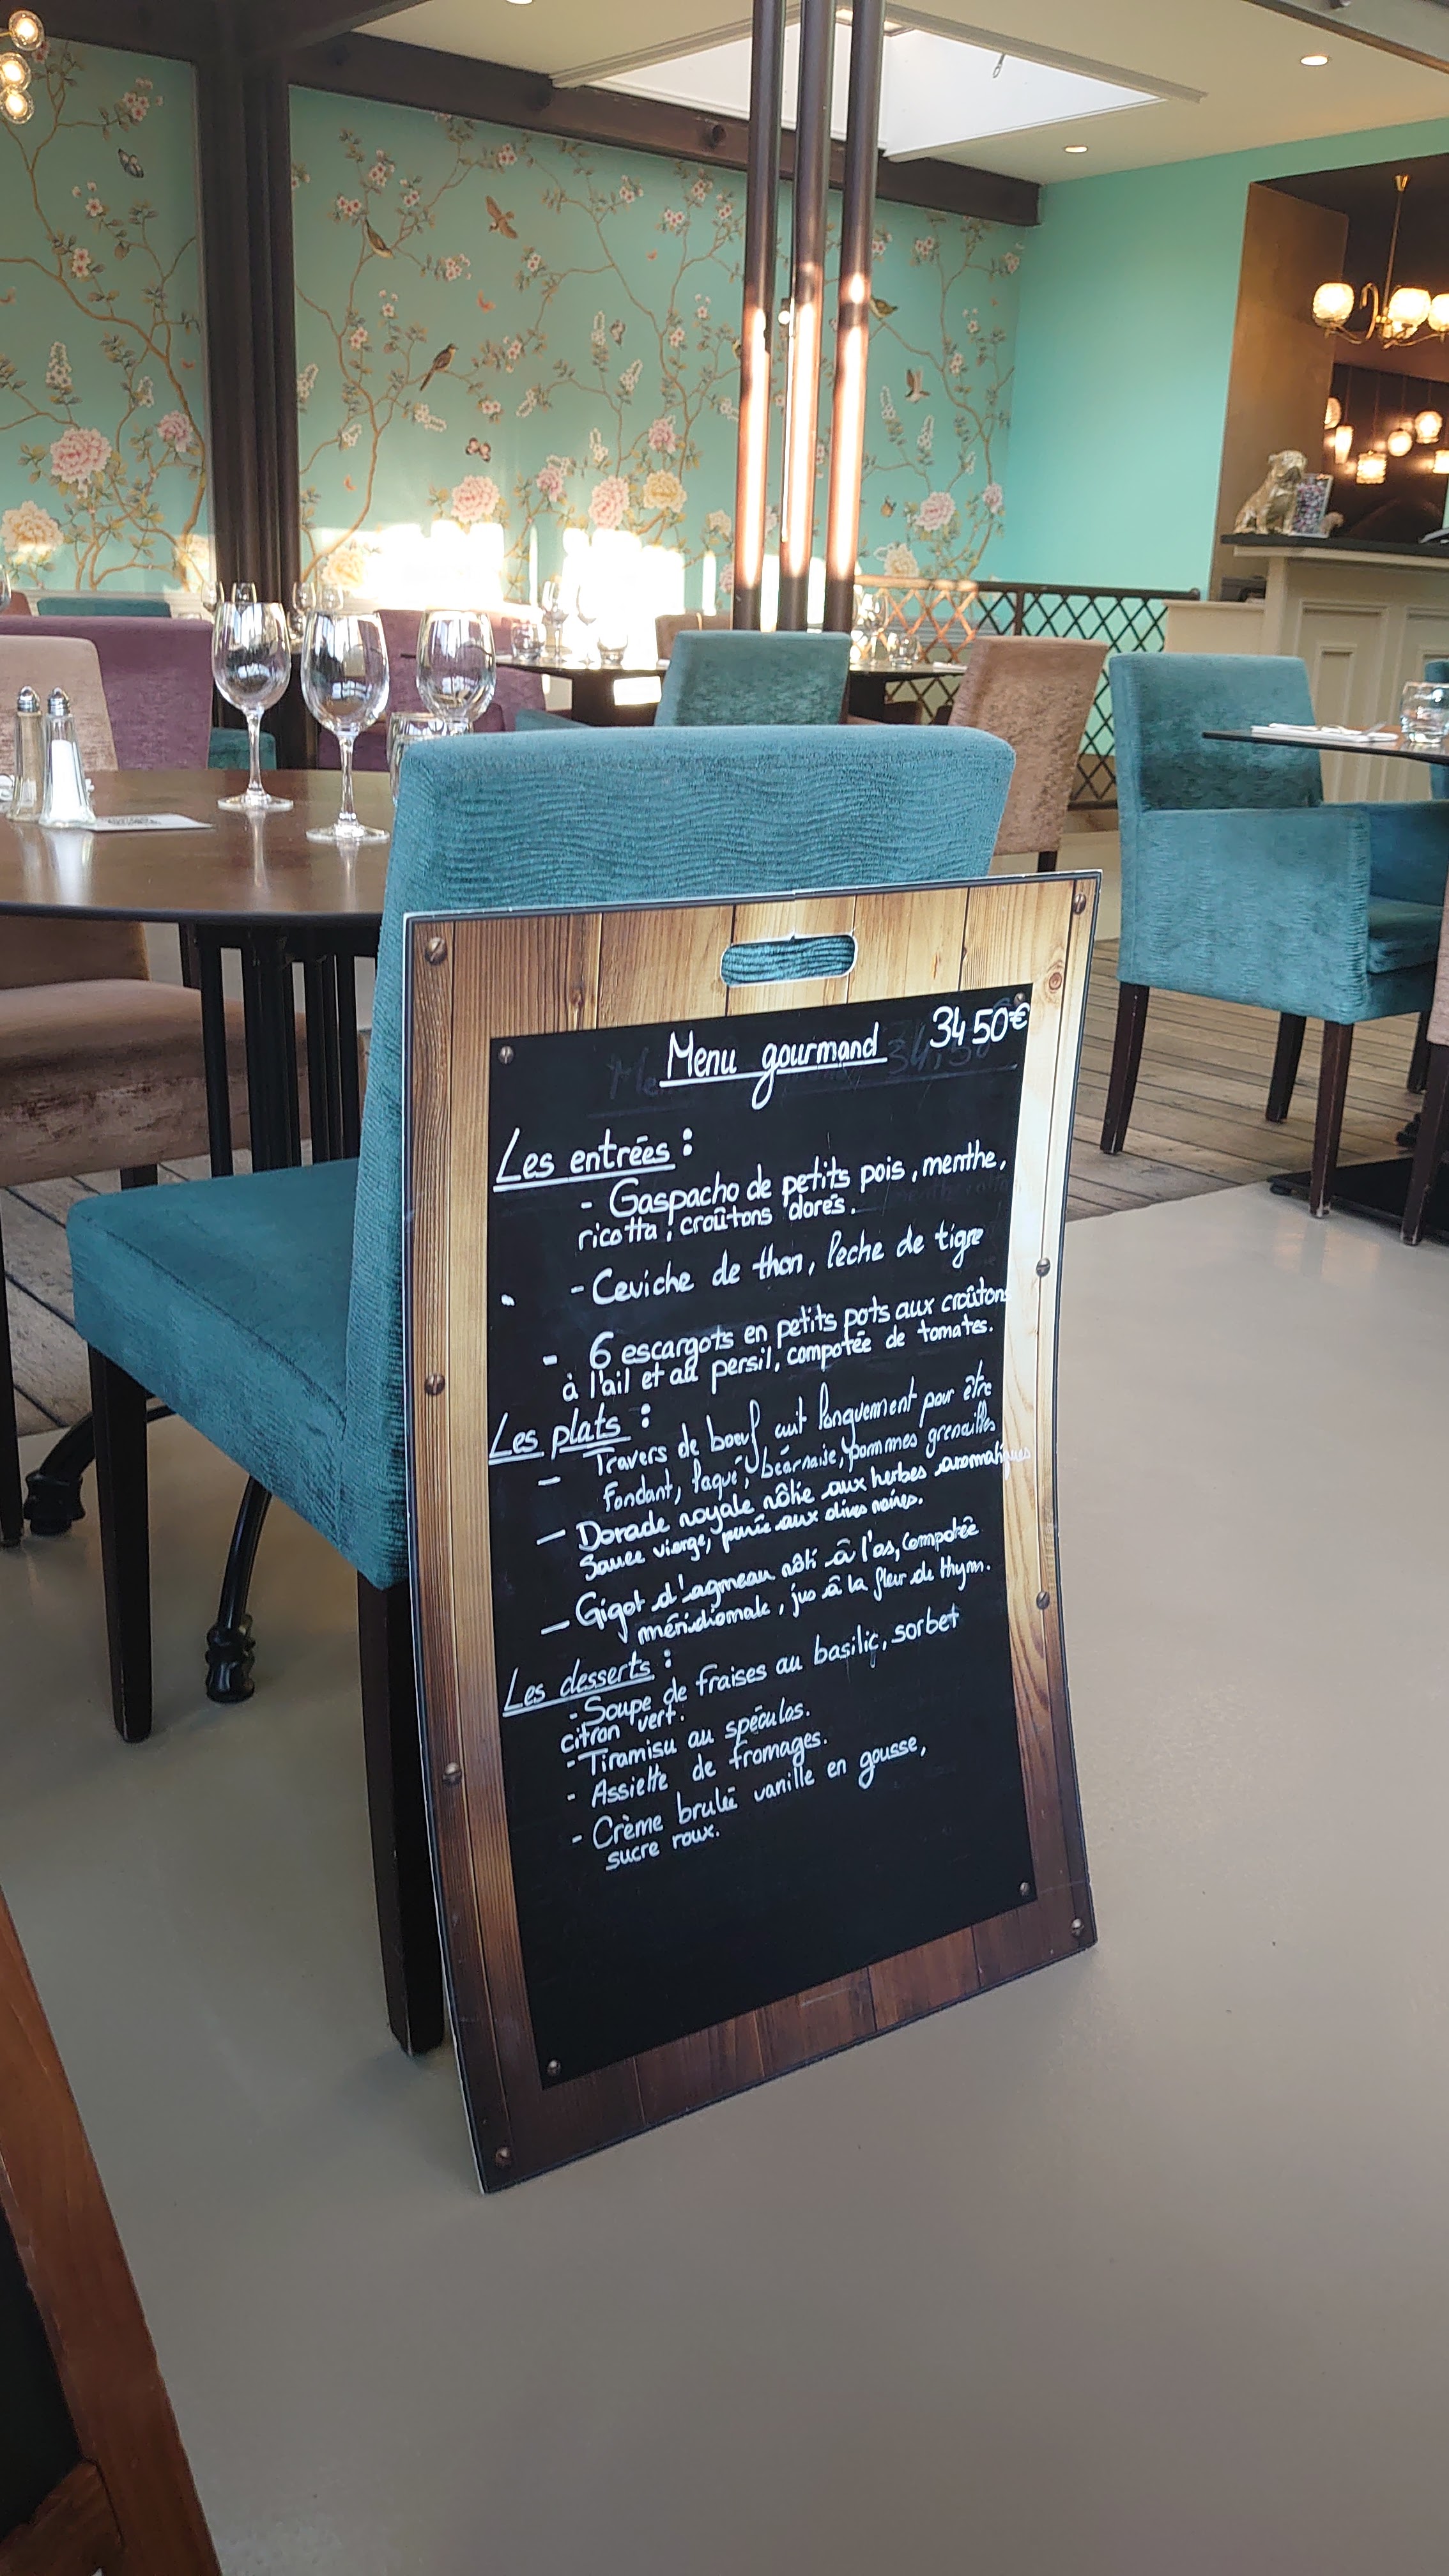 Menu gourmand 34 50€
Les entrées :
- Gaspacho de petits pois, menthe,
ricotta, croûtons dorés.
- Ceviche de thon, leche de tigre
- 6 escargots en petits pots aux croûtons
à l'ail et au persil, compotée de tomates.
Les plats :
- Travers de boeuf cuit longuement pour être
fondant, laqué, béarnaise, pommes grenailles
- Dorade royale rôtie aux herbes aromatiques
Sauce vierge, purée aux olives noires.
- Gigot d'agneau rôti à l'os, compotée
méridionale, jus à la fleur de thym.
Les desserts :
- Soupe de fraises au basilic, sorbet
citron vert.
- Tiramisu au spéculos.
- Assiette de fromages.
- Crème brulée vanille en gousse,
sucre roux.